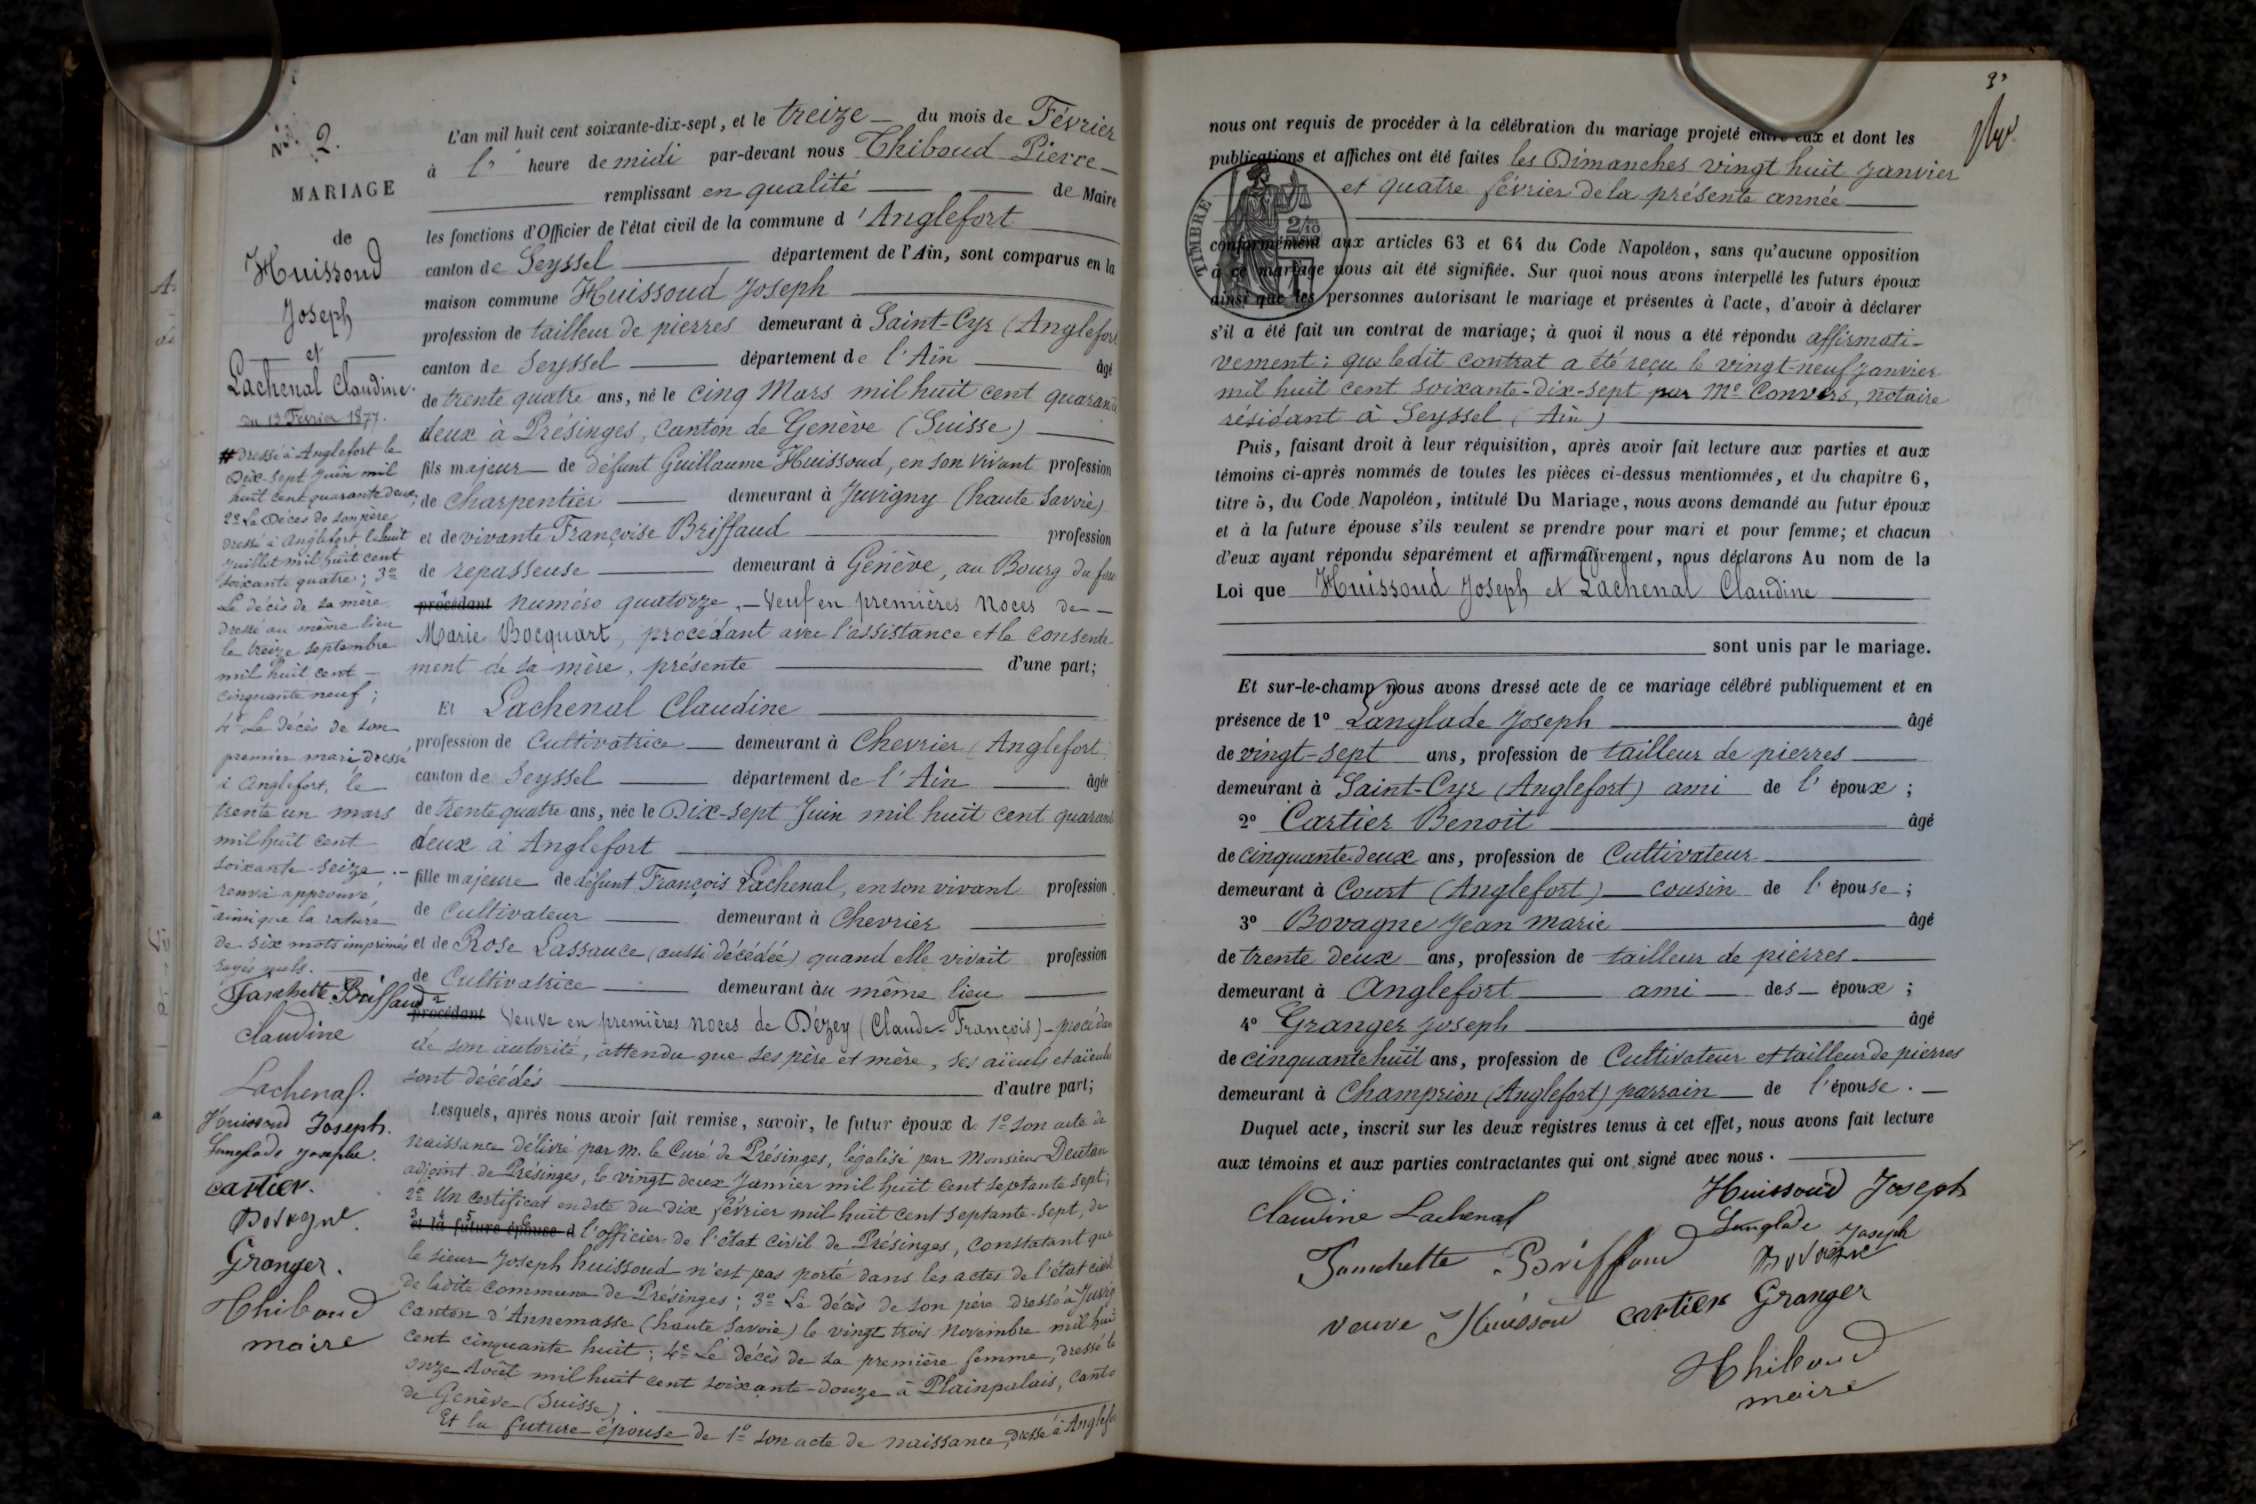 No. 2.
MARIAGE
de
Huissoud
Joseph
et
Lachenal Claudine.
du 13 Février 1877.
# Dressé à Anglefort le
Dix-sept Juin mil
huit cent quarante deux;
2º Le Décès de son père
dressé à Anglefort le huit
Juillet mil huit cent
soixante quatre; 3º
Le décès de sa mère
dressé au même lieu
le treize septembre
mil huit cent
cinquante neuf;
4º Le décès de son
premier mari dressé
à Anglefort, le
trente un mars
mil huit cent
soixante-seize.
renvoi approuvé,
ainsi que la rature
de six mots imprimés
rayés nuls.
Fanchette Briffaud
Claudine
Lachenal.
Huissoud Joseph.
Langlade Joseph.
Cartier.
Bovagne.
Granger.
Thiboud
maire
L'an mil huit cent soixante-dix-sept, et le treize du mois de Février
à 1 heure de midi par-devant nous Thiboud Pierre
remplissant en qualité de Maire
les fonctions d'Officier de l'état civil de la commune d'Anglefort
canton de Seyssel département de l'Ain, sont comparus en la
maison commune Huissoud Joseph
profession de tailleur de pierres demeurant à Saint-Cyr (Anglefort
canton de Seyssel département de l'Ain âgé
de trente quatre ans, né le cinq Mars mil huit cent quarante
deux à Présinges, canton de Genève (Suisse)
fils majeur de défunt Guillaume Huissoud, en son vivant profession
de charpentier demeurant à Juvigny (haute Savoie)
et de vivante Françoise Briffaud profession
de repasseuse demeurant à Génève, au Bourg du four
procédant numéro quatorze, Veuf en premières Noces de
Marie Bocquart, procédant avec l'assistance et le consente-
ment de sa mère, présente d'une part;
Et Lachenal Claudine
profession de Cultivatrice demeurant à Chevrier (Anglefort)
canton de Seyssel département de l'Ain âgée
de trente quatre ans, née le Dix-sept Juin mil huit cent quarante
deux à Anglefort
fille majeure de défunt François Lachenal, en son vivant profession
de Cultivateur demeurant à Chevrier
et de Rose Lassauce (aussi décédée) quand elle vivait profession
de Cultivatrice demeurant àu même lieu
procédant Veuve en premières noces de Dézey (Claude-François) procédan
de son autorité, attendu que ses père et mère, ses aïeuls et aïeules
sont décédés d'autre part;
Lesquels, après nous avoir fait remise, savoir, le futur époux de 1º son acte de
naissance délivré par M. le Curé de Présinges, légalisé par Monsieur Deutan
adjoint de Présinges, le vingt deux Janvier mil huit cent septante sept;
2º Un certificat en date du dix février mil huit cent septante-sept, de
et la future épouse d l'officier de l'état civil de Présinges, constatant que
le sieur Joseph huissoud n'est pas porté dans les actes de l'état civil
de ladite commune de Présinges; 3º Le décès de son père dressé à Juvig
canton d'Annemasse (haute Savoie) le vingt trois Novembre mil huit
cent cinquante huit; 4º Le décès de sa première femme, dressé le
onze Août mil huit cent soixante-douze à Plainpalais, Canto
de Genève (Suisse).
Et la future épouse de 1º son acte de naissance, dressé à Anglefo
3
nous ont requis de procéder à la célébration du mariage projeté entre eux et dont les
publications et affiches ont été faites les Dimanches vingt huit Janvier
et quatre février de la présente année
TIMBRE
conformément aux articles 63 et 64 du Code Napoléon, sans qu'aucune opposition
à ce mariage nous ait été signifiée. Sur quoi nous avons interpellé les futurs époux
ainsi que les personnes autorisant le mariage et présentes à l'acte, d'avoir à déclarer
s'il a été fait un contrat de mariage; à quoi il nous a été répondu affirmati-
vement: que ledit contrat a été reçu le vingt-neuf Janvier
mil huit cent soixante-dix-sept par Me Convers, notaire
résidant à Seyssel (Ain)
Puis, faisant droit à leur réquisition, après avoir fait lecture aux parties et aux
témoins ci-après nommés de toutes les pièces ci-dessus mentionnées, et du chapitre 6,
titre 5, du Code Napoléon, intitulé Du Mariage, nous avons demandé au futur époux
et à la future épouse s'ils veulent se prendre pour mari et pour femme; et chacun
d'eux ayant répondu séparément et affirmativement, nous déclarons Au nom de la
Loi que Huissoud Joseph et Lachenal Claudine
sont unis par le mariage.
Et sur-le-champ nous avons dressé acte de ce mariage célébré publiquement et en
présence de 1º Langlade Joseph âgé
de vingt-sept ans, profession de tailleur de pierres
demeurant à Saint-Cyr (Anglefort) ami de l'époux;
2º Cartier Benoit âgé
de cinquante deux ans, profession de Cultivateur
demeurant à Court (Anglefort) cousin de l'épouse;
3º Bovagne Jean Marie âgé
de trente deux ans, profession de tailleur de pierres
demeurant à Anglefort ami des époux;
4º Granger Joseph âgé
de cinquante huit ans, profession de Cultivateur et tailleur de pierres
demeurant à Champrion (Anglefort) parrain de l'épouse.
Duquel acte, inscrit sur les deux registres tenus à cet effet, nous avons fait lecture
aux témoins et aux parties contractantes qui ont signé avec nous.
Claudine Lachenal
Huissoud Joseph
Langlade Joseph
Fanchette Briffaud
Bovagne
veuve Huissou
Cartier Granger
Thiboud
maire